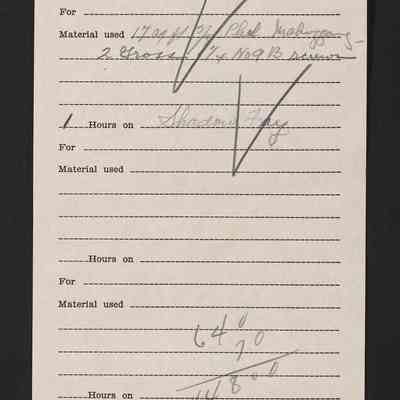 For
Material used 17 sq ft 3/4 Phil Mahogany
2 Gross 1 1/4 No 9 B screws
1 Hours on Shadow Fay
For
Material used
Hours on
For
Material used
640
70
Hours on